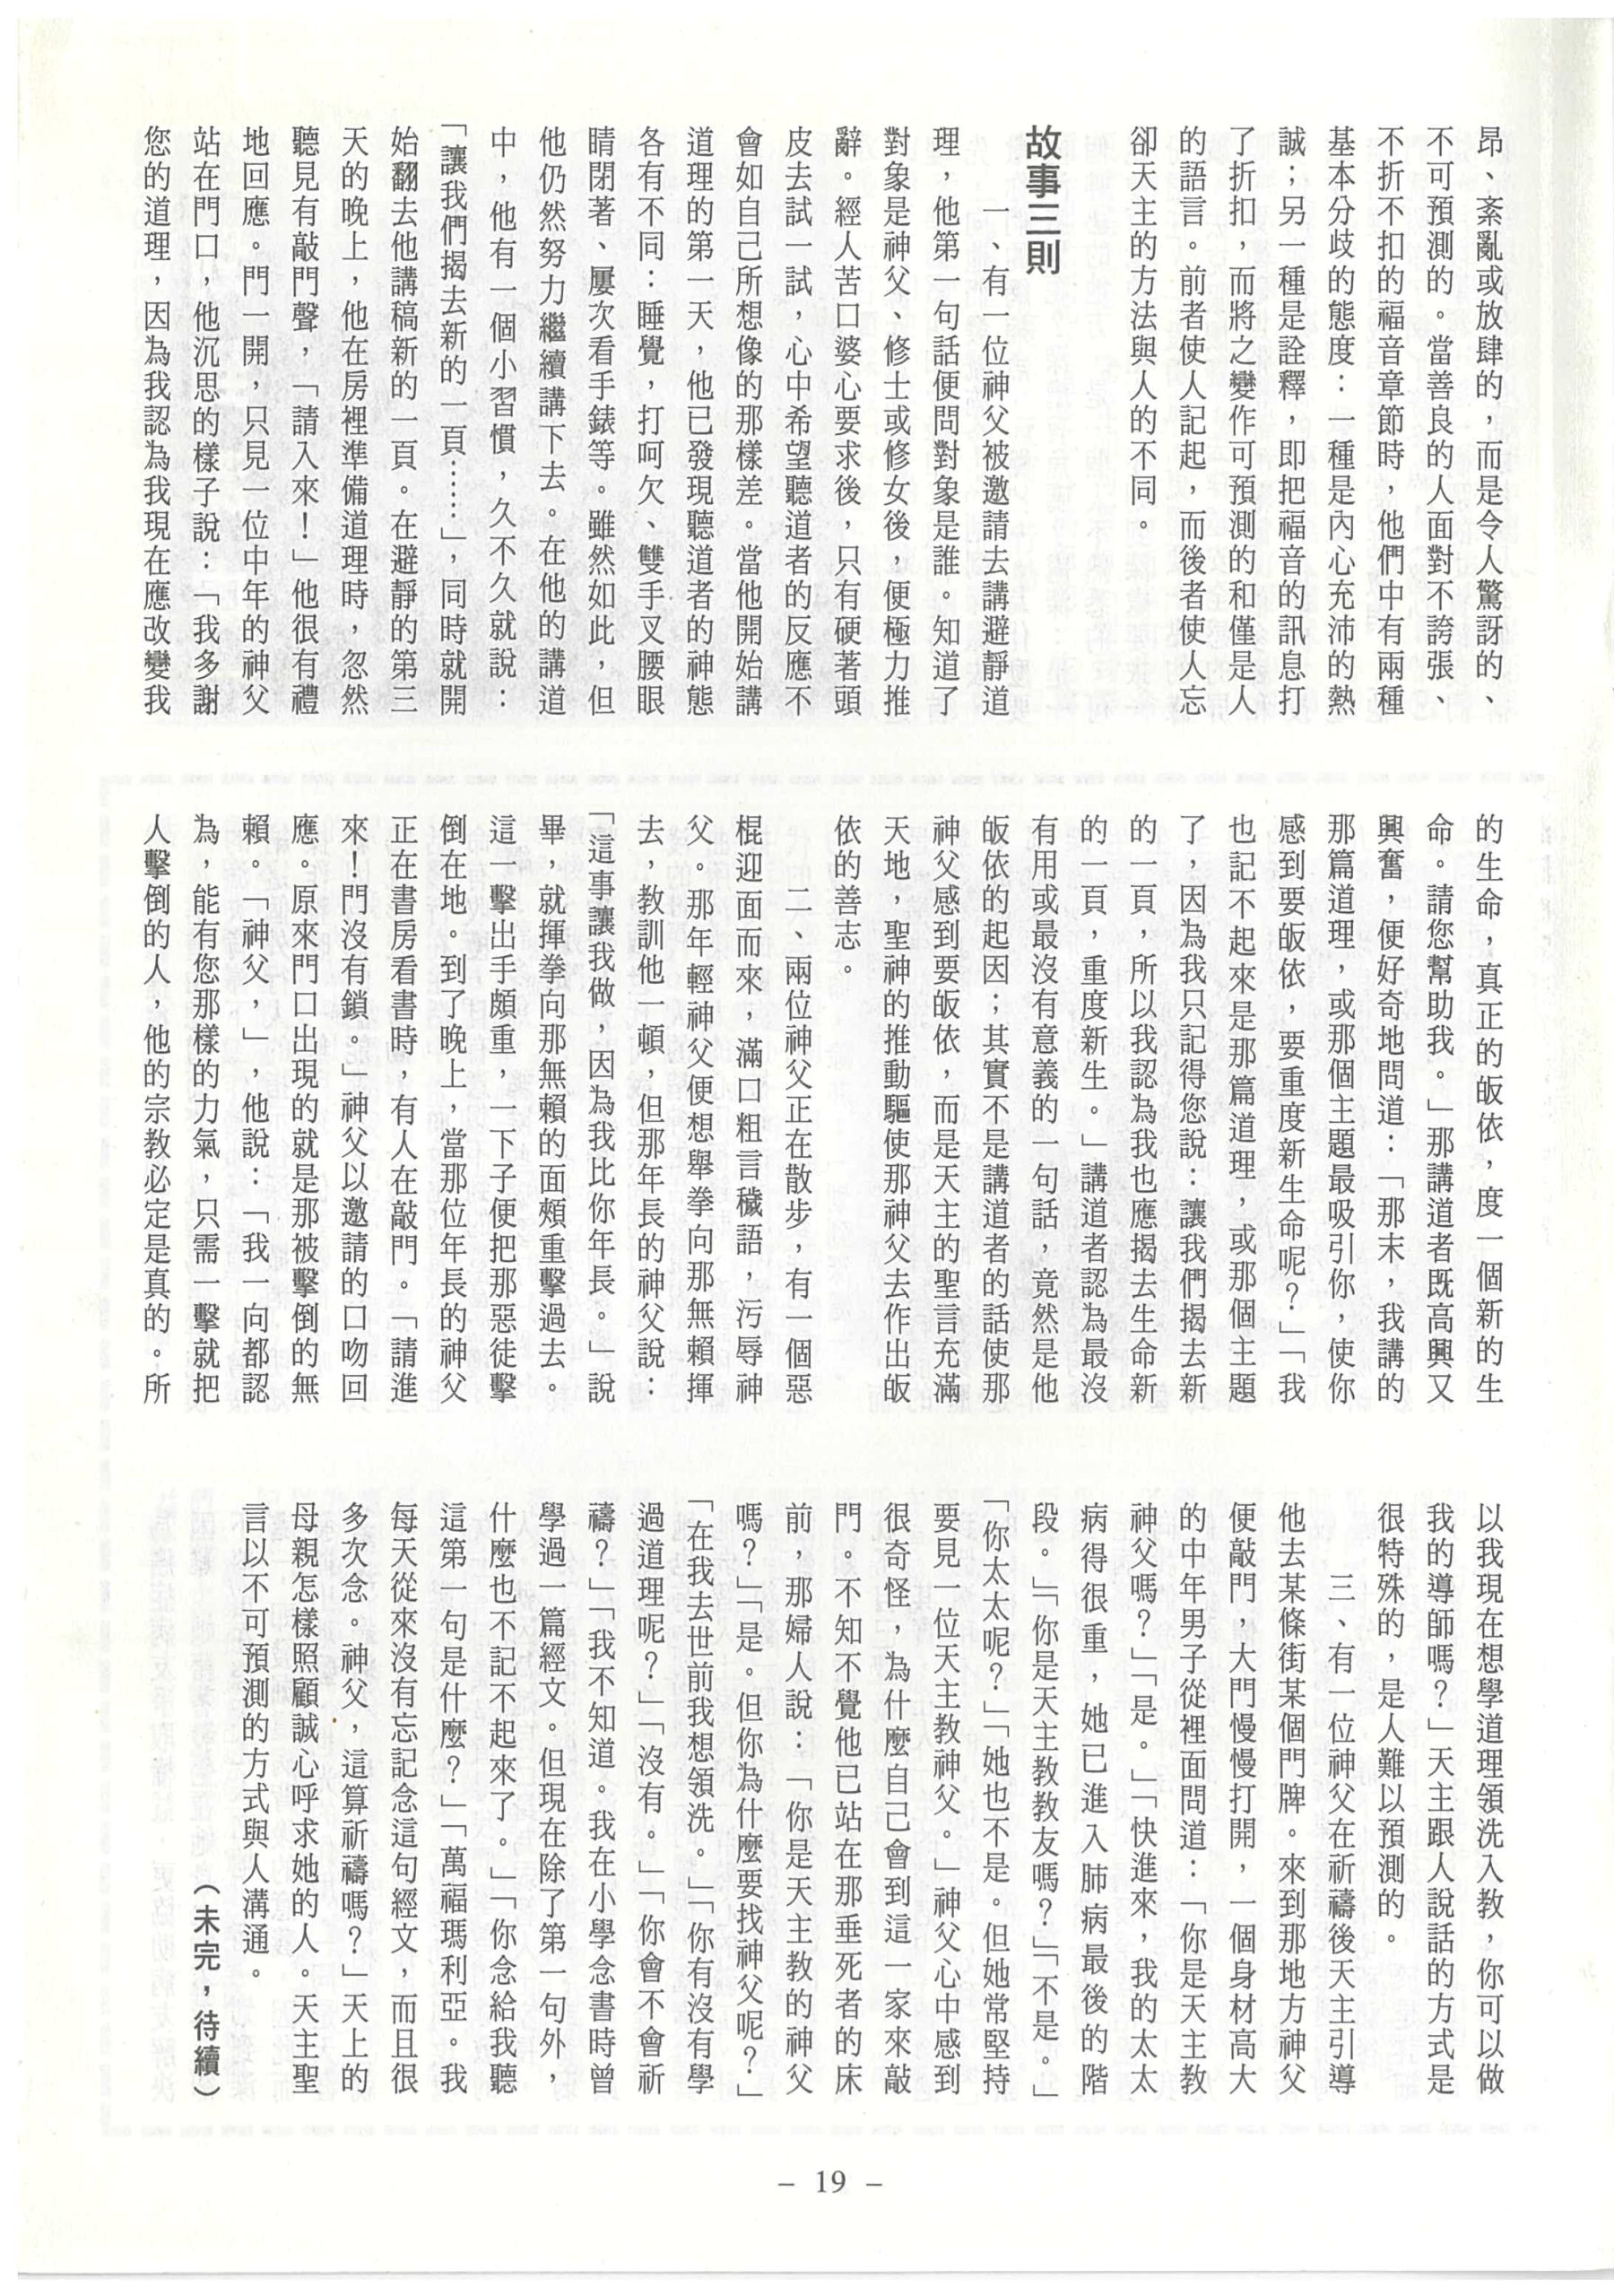 昂、紊亂或放肆的，而是令人驚訝的、
不可預測的。當善良的人面對不誇張、
不折不扣的福音章節時，他們中有兩種
基本分歧的態度：一種是內心充沛的熱
誠；另一種是詮釋，即把福音的訊息打
了折扣，而將之變作可預測的和僅是人
的語言。前者使人記起，而後者使人忘
卻天主的方法與人的不同。
故事三則
一、有一位神父被邀請去講避靜道
理，他第一句話便問對象是誰。知道了
對象是神父、修士或修女後，便極力推
辭。經人苦口婆心要求後，只有硬著頭
皮去試一試，心中希望聽道者的反應不
會如自己所想像的那樣差。當他開始講
道理的第一天，他已發現聽道者的神態
各有不同：睡覺，打呵欠、雙手叉腰眼
睛閉著、屢次看手錶等。雖然如此，但
他仍然努力繼續講下去。在他的講道
中，他有一個小習慣，久不久就說：
「讓我們揭去新的一頁……」，同時就開
始翻去他講稿新的一頁。在避靜的第三
天的晚上，他在房裡準備道理時，忽然
聽見有敲門聲，「請入來！」他很有禮
地回應。門一開，只見一位中年的神父
站在門口，他沉思的樣子說：「我多謝
您的道理，因為我認為我現在應改變我
的生命，真正的皈依，度一個新的生
命。請您幫助我。」那講道者既高興又
興奮，便好奇地問道：「那末，我講的
那篇道理，或那個主題最吸引你，使你
感到要皈依，要重度新生命呢？」「我
也記不起來是那篇道理，或那個主題
了，因為我只記得您說：讓我們揭去新
的一頁，所以我認為我也應揭去生命新
的一頁，重度新生。」講道者認為最沒
有用或最沒有意義的一句話，竟然是他
皈依的起因；其實不是講道者的話使那
神父感到要皈依，而是天主的聖言充滿
天地，聖神的推動驅使那神父去作出皈
依的善志。
二、兩位神父正在散步，有一個惡
棍迎面而來，滿口粗言穢語，污辱神
父。那年輕神父便想舉拳向那無賴揮
去，教訓他一頓，但那年長的神父說：
「這事讓我做，因為我比你年長。」說
畢，就揮拳向那無賴的面頗重擊過去。
這一擊出手頗重，一下子便把那惡徒擊
倒在地。到了晚上，當那位年長的神父
正在書房看書時，有人在敲門。「請進
來！門沒有鎖。」神父以邀請的口吻回
應。原來門口出現的就是那被擊倒的無
賴。「神父，」，他說：「我一向都認
為，能有您那樣的力氣，只需一擊就把
人擊倒的人，他的宗教必定是真的。所
以我現在想學道理領洗入教，你可以做
我的導師嗎？」天主跟人說話的方式是
很特殊的，是人難以預測的。
三、有一位神父在祈禱後天主引導
他去某條街某個門牌。來到那地方神父
便敲門，大門慢慢打開，一個身材高大
的中年男子從裡面問道：「你是天主教
神父嗎？」「是。」「快進來，我的太太
病得很重，她已進入肺病最後的階
段。」「你是天主教教友嗎？」「不是。」
「你太太呢？」「她也不是。但她常堅持
要見一位天主教神父。」神父心中感到
很奇怪，為什麼自己會到這一家來敲
門。不知不覺他已站在那垂死者的床
前，那婦人說：「你是天主教的神父
嗎？」「是。但你為什麼要找神父呢？」
「在我去世前我想領洗。」「你有沒有學
過道理呢？」「沒有。」「你會不會祈
禱？」「我不知道。我在小學念書時曾
學過一篇經文。但現在除了第一句外，
什麼也不記不起來了。」「你念給我聽
這第一句是什麼？」「萬福瑪利亞。我
每天從來沒有忘記念這句經文，而且很
多次念。神父，這算祈禱嗎？」天上的
母親怎樣照顧誠心呼求她的人。天主聖
言以不可預測的方式與人溝通。
（未完，待續）
– 19 –